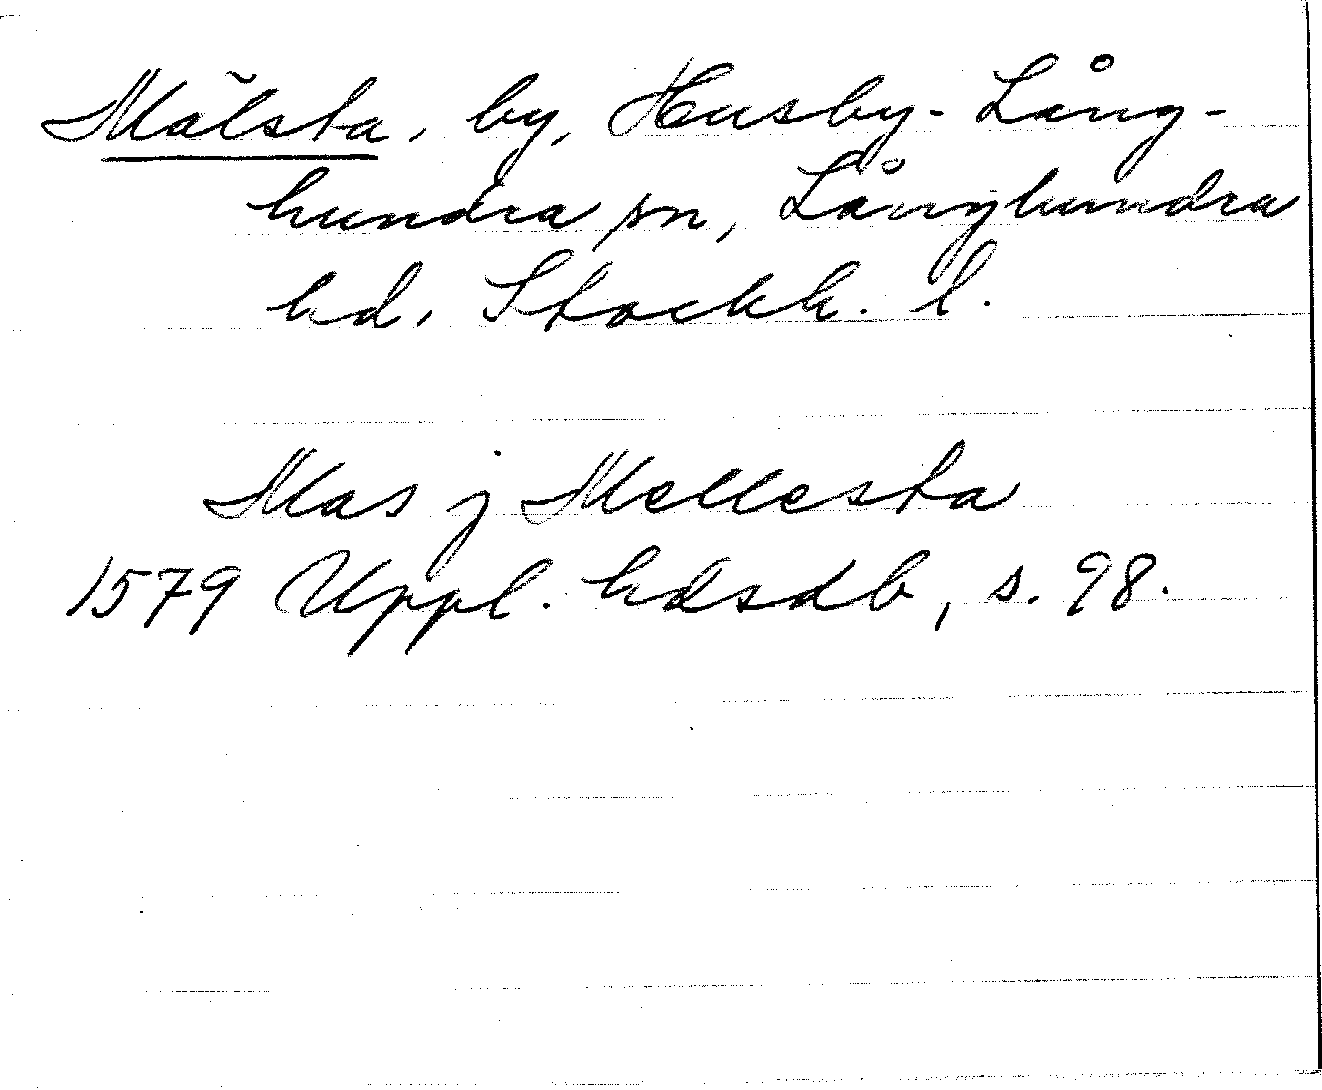 Mälsta, by, Husby-Lång-
hundra sn, Långhundra
hd, Stockh. l.
Mas j Mellesta
1579 Uppl. hdsdb, s. 98.